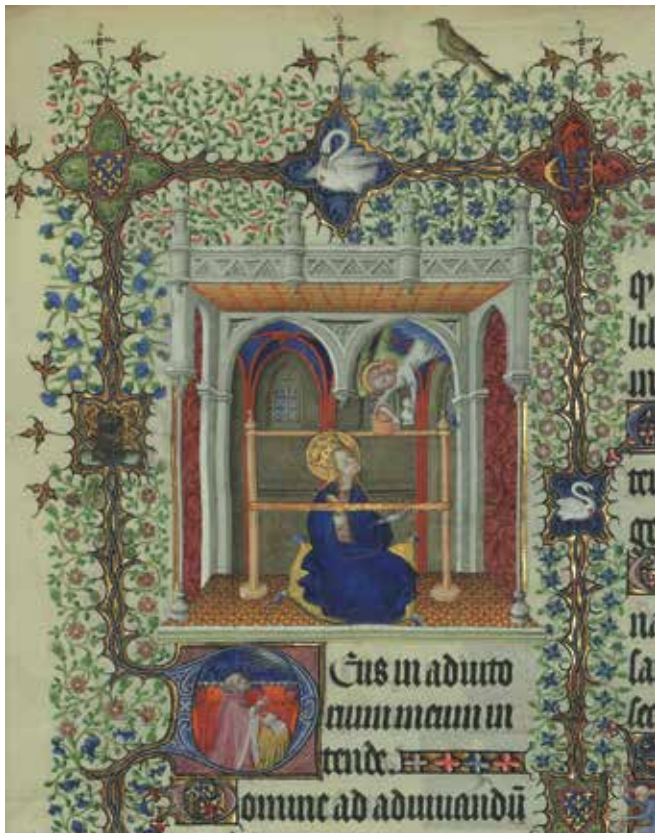 DEus in adiuto
rium meum in
tende.
Domine ad adiuuandū